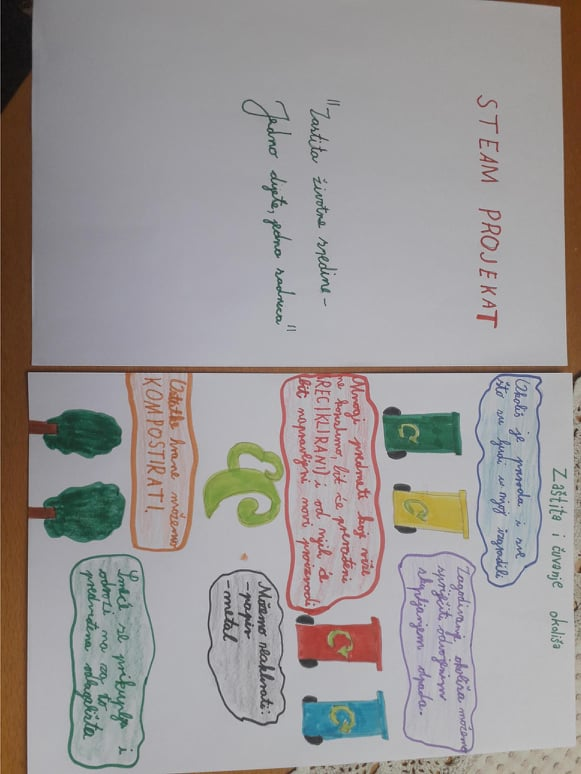 STEAM PROJEKAT
"Zaštita životne sredine -
Jedno dijete, jedna sadnica"
Zaštita i čuvanje okoliša
Okoliš je priroda i sve
što su ljudi u njoj izgradili
Zagađivanje okoliša možemo
spriječiti odvojenim
skupljanjem otpada.
Mnogi predmeti koji više
ne koristimo, bit će prerađeni
(RECIKLIRANI) i od njih će
bit napravljeni novi proizvodi
Možemo reciklirati:
-papir
-metal
Ostatke hrane možemo
KOMPOSTIRATI.
Smeće se prikuplja i
odvozi na za to
predviđena odlagališta